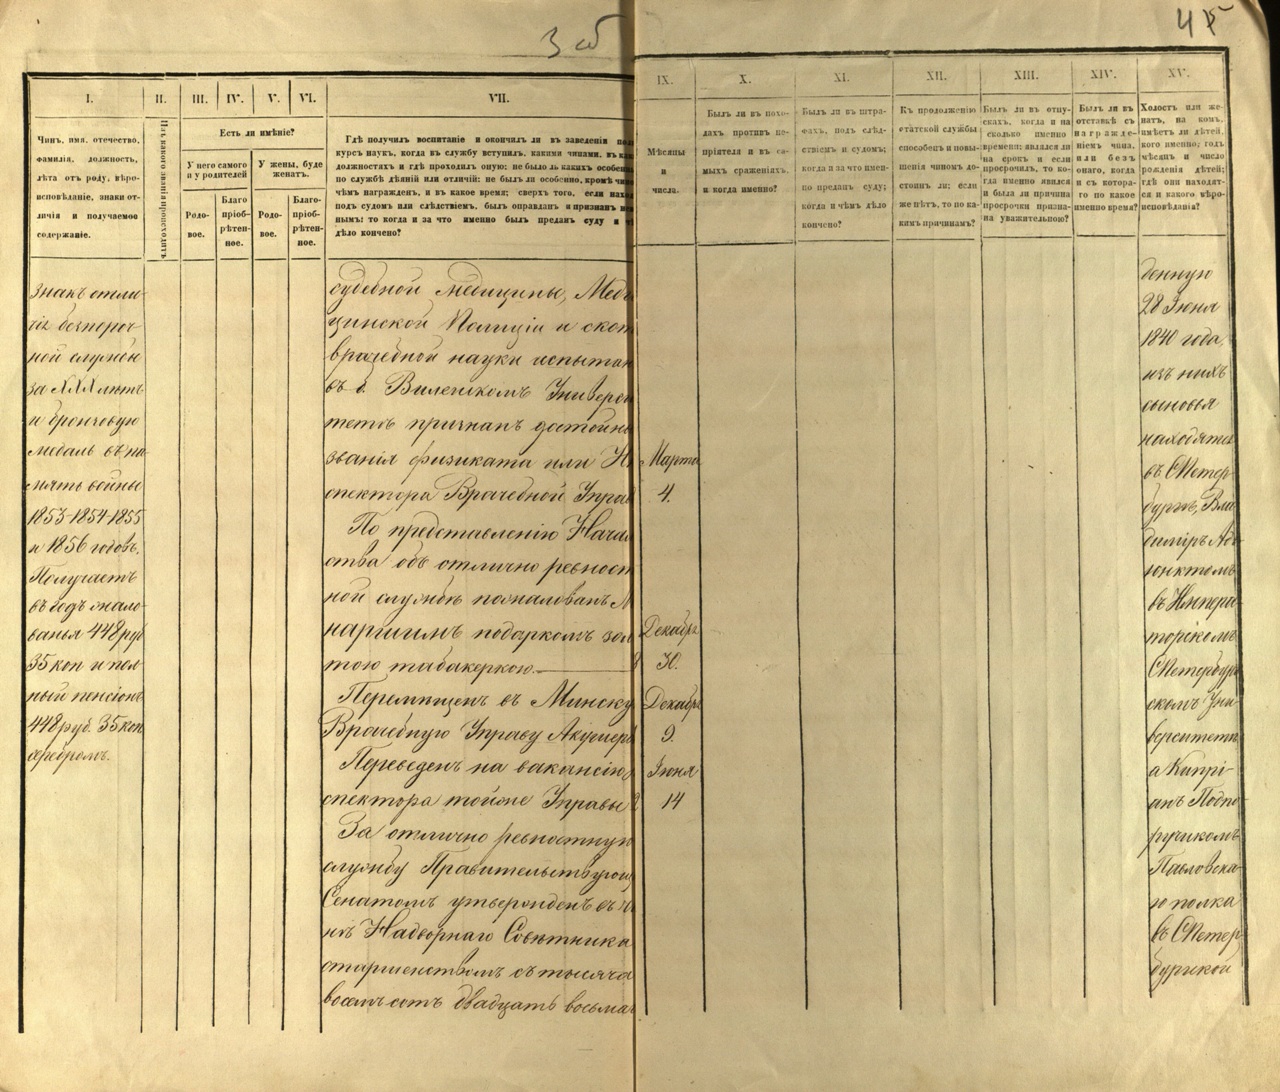 3 об
45
I.
II.
III.
IV.
V.
VI.
VII.
IX.
X.
XI.
XII.
XIII.
XIV.
XV.
Чинъ, имя, отечество,
фамилія, должность,
лѣта отъ роду, вѣро-
исповѣданіе, знаки от-
личія и получаемое
содержаніе.
Изъ какого званія происходитъ.
Есть ли имѣніе?
У него самого
и у родителей
У жены, буде
женатъ.
Родо-
вое.
Благо
пріоб-
рѣтен-
ное.
Родо-
вое.
Благо-
пріоб-
рѣтен-
ное.
Гдѣ получилъ воспитаніе и окончилъ ли въ заведеніи пол
курсъ наукъ, когда въ службу вступилъ, какими чинами, въ как
должностяхъ и гдѣ проходилъ оную; не было ль какихъ особенн
по службѣ дѣяній или отличій; не былъ ли особенно, кромѣ чино
чѣмъ награжденъ, и въ какое время; сверхъ того, если наход
подъ судомъ или слѣдствіемъ, былъ оправданъ и признанъ
нымъ: то когда и за что именно былъ преданъ суду и
дѣло кончено?
Мѣсяцы
и
числа.
Былъ ли въ похо-
дахъ противъ не-
пріятеля и въ са-
мыхъ сраженіяхъ,
и когда именно?
Былъ ли въ штра-
фахъ, подъ слѣд-
ствіемъ и судомъ;
когда и за что имен-
но преданъ суду;
когда и чѣмъ дѣло
кончено?
Къ продолженію
статской службы
способенъ и повы-
шенія чиномъ до-
стоинъ ли; если
же нѣтъ, то по ка-
кимъ причинамъ?
Былъ ли въ отпу-
скахъ, когда и на
сколько именно
времени; являлся ли
на срокъ и если
просрочилъ, то ко-
гда именно явился
и была ли причина
просрочки призна-
на уважительною?
Былъ ли въ
отставкѣ съ
награжде-
ніемъ чина,
или безъ
онаго, когда
и съ котора-
го по какое
именно время?
Холостъ или же-
натъ, на комъ,
имѣетъ ли дѣтей,
кого именно; годъ
мѣсяцъ и число
рожденія дѣтей;
гдѣ они находят-
ся и какого вѣро-
исповѣданія?
знакъ отли-
чія безпороч-
ной службы
за XXX лѣтъ
и бронзовую
медаль въ па-
мять войны
1853-1854-1855
и 1856 годовъ.
Получаетъ
въ годъ жало-
ванья 448 руб
35 коп и пол-
ный пенсіонъ
448 руб. 35 коп
серебромъ.
судебной медицины, Меди
цинской Полиціи и скот
врачебной науки испытан
въ б. Виленскомъ Универси
тетѣ признанъ достойны
званія физиката или Ин
спектора Врачебной Управ
По представленію Начал
ства объ отлично ревност
ной службѣ пожалованъ М
наршимъ подаркомъ зол
тою табакеркою.
Перемѣщенъ въ Минску
Врачебную Управу Акушер
Переведенъ на вакансію
спектора тойже Управы
За отлично ревностную
службу Правительствующ
Сенатомъ утвержденъ въ ч
нѣ Надворнаго Совѣтника
старшинствомъ съ тысяча
восемьсотъ двадцать восьма
Марта
4.
Декабря
30.
Декабря
9.
Іюня
14
денную
28 Іюня
1840 года,
изъ нихъ
сыновья
находятся
въ СПетер-
бургѣ, Вла-
диміръ Адъ-
юнктомъ
въ Импера-
торскомъ
СПетербург-
скомъ Уни-
верситетѣ,
а Кипрі-
анъ Подпо-
ручикомъ
Павловска-
го полка
въ СПетер-
бургской